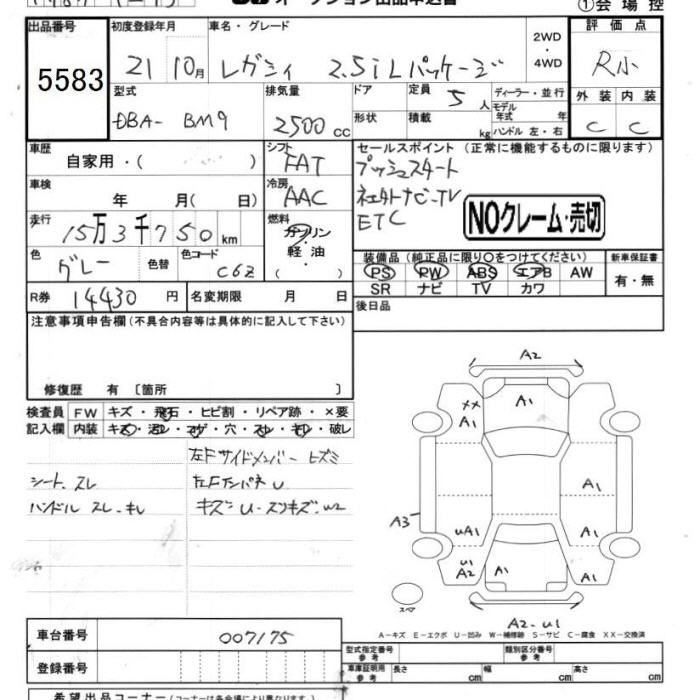 オークション出品申込書
①会場控
出品番号 初度登録年月 車名・グレード 2WD・4WD 評価点
5583 21 10月 レガシィ 2.5i Lパッケージ R小
型式 排気量 ドア 定員 5人 ディーラー・並行 外装 内装
DBA- BM9 2500cc 形状 積載 kg モデル年式 年 ハンドル 左・右 C C
車歴 自家用・( ) シフト FAT セールスポイント (正常に機能するものに限ります)
プッシュスタート
車検 年 月( 日) 冷房 AAC
ナビ-TV
ETC
NOクレーム・売切
走行 15万3千750km 燃料 ガソリン・軽油・( )
色 グレー 色替 色コード C6Z
装備品(純正品に限り○をつけてください) 新車保証書
PS PW ABS エアB AW 有・無
SR ナビ TV カワ
R券 14430円 名変期限 月 日 後日品
注意事項申告欄(不具合内容等は具体的に記入して下さい)
修復歴 有〔箇所 〕
検査員記入欄 FW キズ・飛石・ヒビ割・リペア跡・×要
内装 キズ・汚レ・コゲ・穴・スレ・キレ・破レ
左Fサイドメンバー ヒズミ
シート.スレ 左Fインパネ U
ハンドル スレ.キレ キズ U-スリキズ.W2
A2
XX
A1
A1
A1
A3
UA1
A1
U1
A2
A1
A1
スペア
A2-U1
A-キズ E-エクボ U-凹み W-補修跡 S-サビ C-腐食 XX-交換済
車台番号 007175
型式指定番号 参考 類別区分番号 参考
登録番号
車庫証明用 参考 長さ cm 幅 cm 高さ cm
希望出品コーナー(コーナーは各会場により異なります)